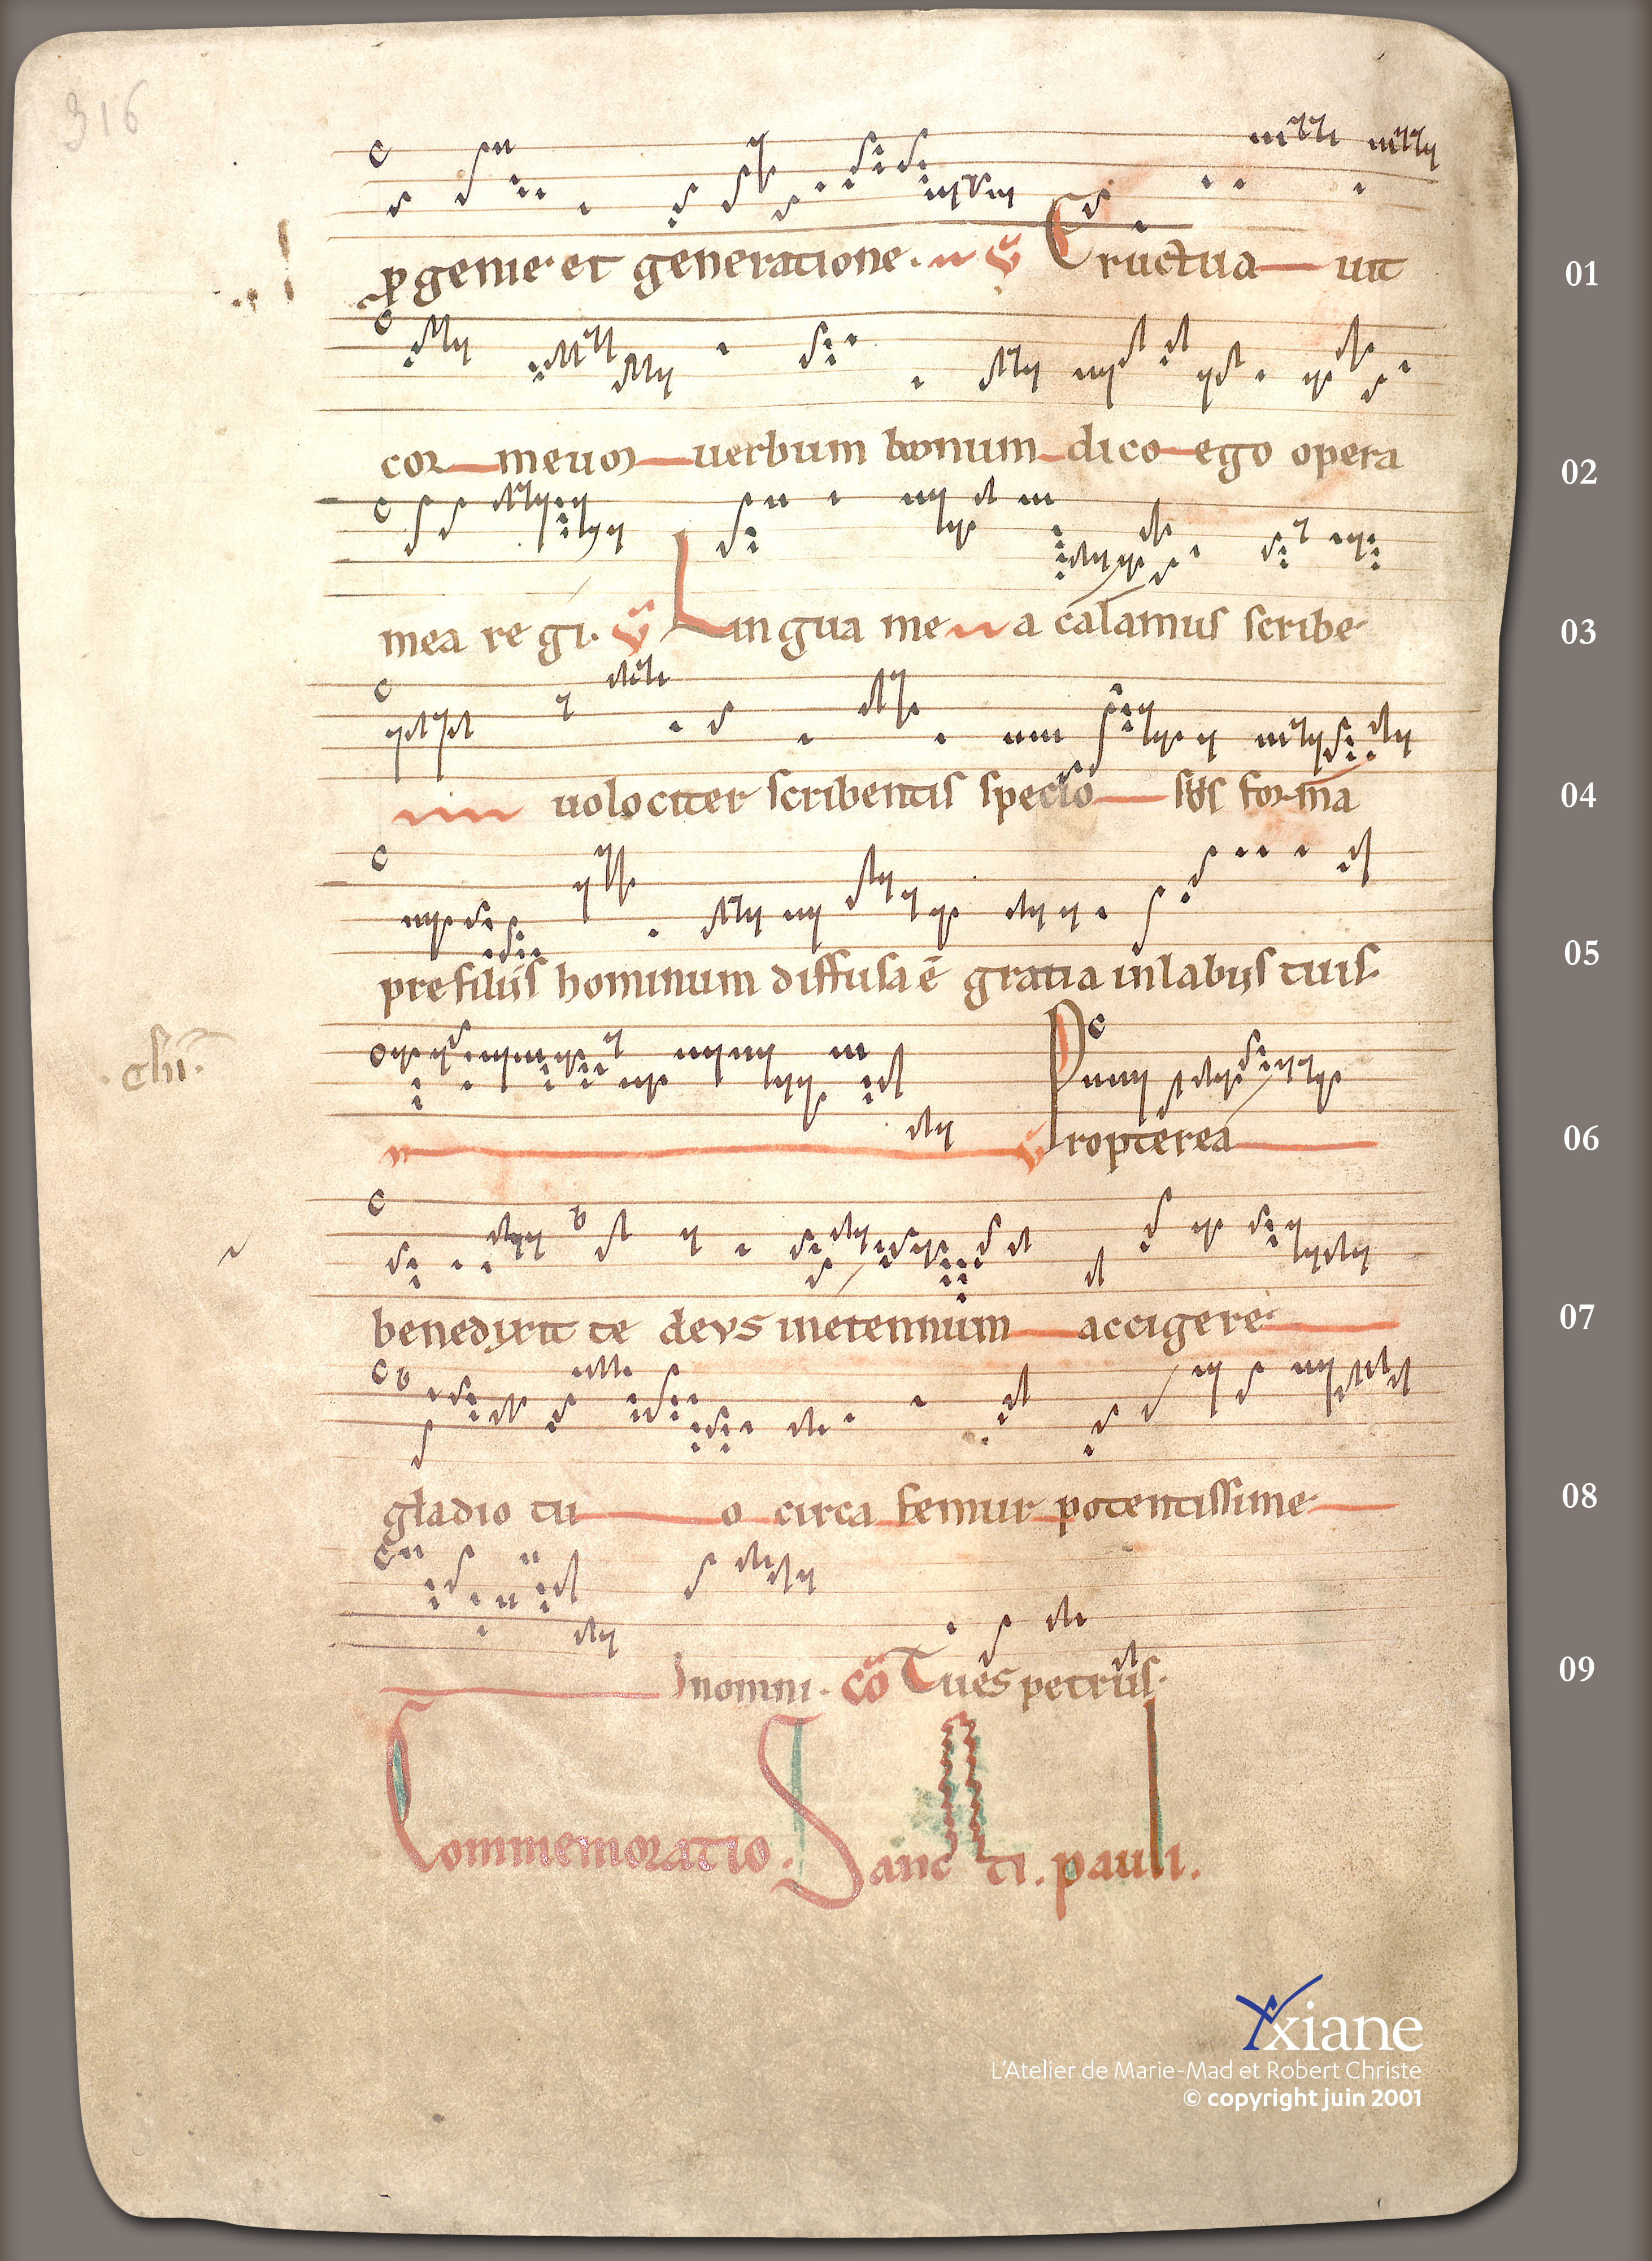 316
ꝓgenie et generatione. ℣ Eructua uit 01
cor meum uerbum bonum dico ego opera 02
mea regi. ℣ Lingua me a calamus scribe 03
uolociter scribentis specio sus forma 04
pre filiis hominum diffusa ē gratia in labiis tuis. 05
chi
℣ Propterea 06
benedixit te deus in eternum accigere 07
gladio tu o circa femur potentissime 08
In omni. cō Tu es petrus. 09
Commemoratio. Sanc ti. pauli.
xiane
L'Atelier de Marie-Mad et Robert Christe
© copyright juin 2001